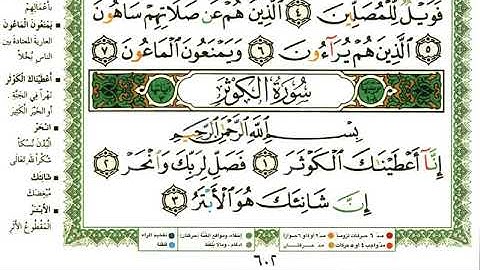 فَوَيْلٌ لِّلْمُصَلِّينَ ٤ الَّذِينَ هُمْ عَن صَلَاتِهِمْ سَاهُونَ
٥ الَّذِينَ هُمْ يُرَآءُونَ ٦ وَيَمْنَعُونَ الْمَاعُونَ ٧
سُورَةُ الْكَوْثَرِ
بِسْمِ اللَّهِ الرَّحْمَٰنِ الرَّحِيمِ
إِنَّآ أَعْطَيْنَاكَ الْكَوْثَرَ ١ فَصَلِّ لِرَبِّكَ وَانْحَرْ ٢
إِنَّ شَانِئَكَ هُوَ الْأَبْتَرُ ٣
بأعمالِهِم
يَمْنَعُونَ الْمَاعُونَ
العارية المعتادة بين
الناس بُخلاً
أَعْطَيْنَاكَ الْكَوْثَرَ
نهراً في الجنَّة
أو الخير الكثير
انْحَرْ
البُدْنَ نُسُكاً
شُكراً لله تعالى
شَانِئَكَ
مُبْغِضَكَ
الْأَبْتَرُ
المقطوعُ الأثَر
٦٠٢